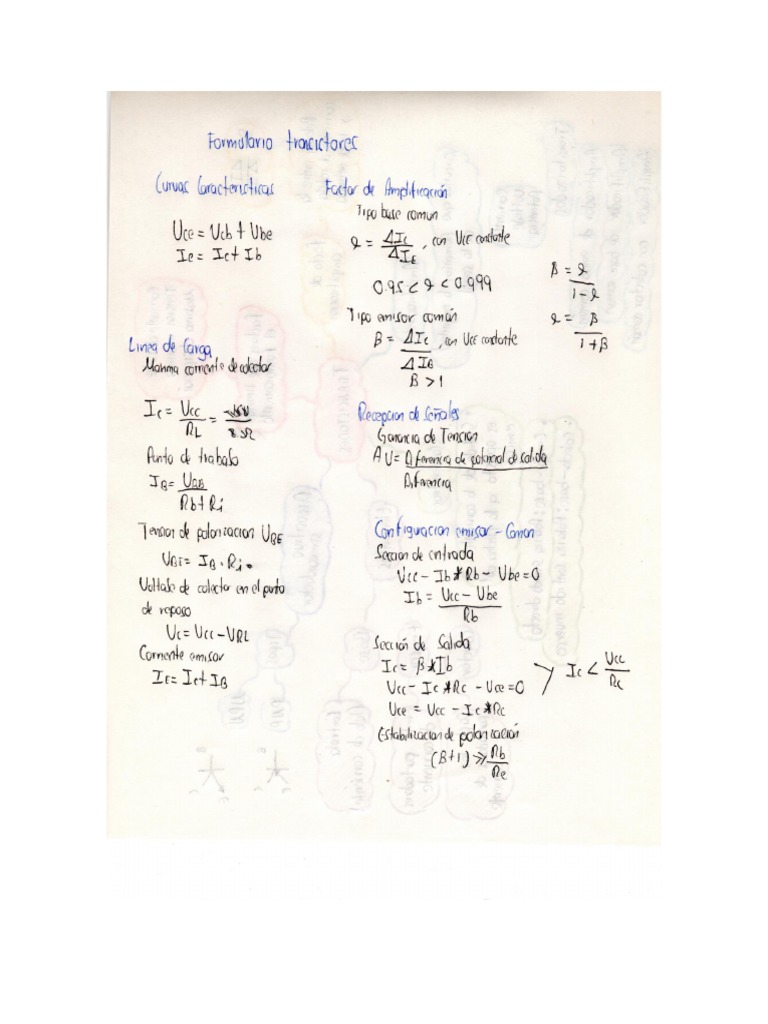 Formulario transistores
Curvas Caracteristicas
Uce = Ucb + Ube
Ie = Ic + Ib
Linea de Carga
Maxima corriente de colector
Ic = Ucc / RL =
Punto de trabajo
IB = UBB / Rb + Ri
Tension de polarizacion UBE
UBE = IB · Ri.
Voltaje de colector en el punto
de reposo
Uc = Ucc - URL
Corriente emisor
IE = Ic + IB
Factor de Amplificación
Tipo base comun
α = ΔIc / ΔIE, con Ucc constante
0.95 < α < 0.999
β = α / 1 - α
Tipo emisor común
β = ΔIc / ΔIB, con Ucc constante
β > 1
α = β / 1 + β
Recepcion de Señales
Ganancia de Tension
AU = Diferencia de potencial de salida / Diferencia
Configuracion emisor - Comun
Seccion de entrada
Ucc - Ib * Rb - Ube = 0
Ib = Ucc - Ube / Rb
Sección de Salida
Ic = β * Ib
Ucc - Ic * Rc - Uce = 0
Uce = Ucc - Ic * Rc
Ic < Ucc / Rc
Estabilizacion de polarización
(β + 1) >> Rb / Re